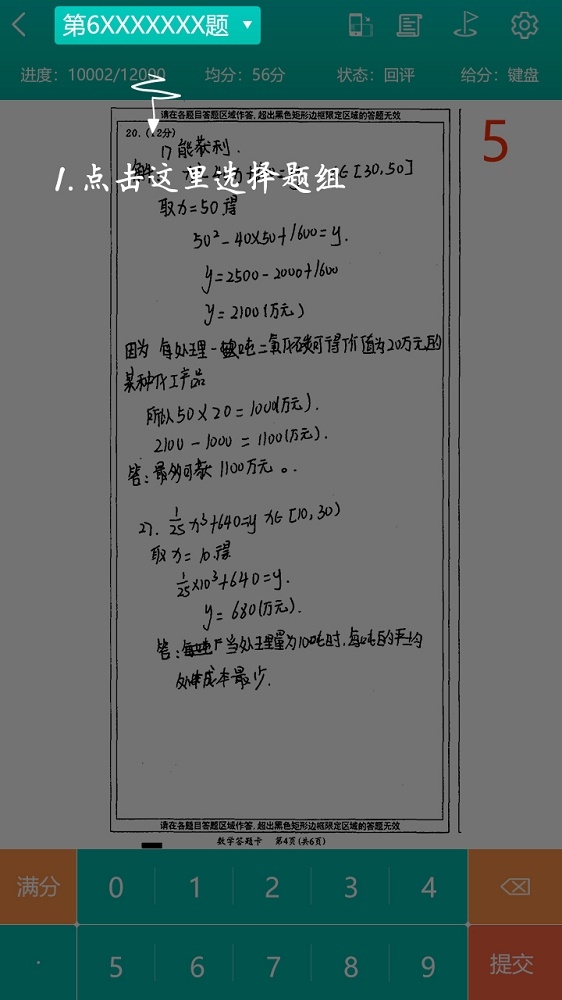 第6XXXXXXX题
进度：10002/12000 均分：56分 状态：回评 给分：键盘
请在各题目答题区域作答，超出黑色矩形边框限定区域的答题无效
5
20.（12分）
1.点击这里选择题组
∈[30,50]
取x=50得
50²-40×50+1600=y.
y=2500-2000+1600
y=2100(万元)
因为每处理一吨二氧化碳可得价值为20万元的
某种化工产品
所以50×20=1000(万元).
2100-1000=1100(万元).
答:最多可获1100万元。.
27. 1/25 x³+640=y x∈[10,30)
取x=10得
1/25×10³+640=y.
y=680(万元).
当处理量为10吨时,每吨的平均
处理成本最少.
请在各题目答题区域作答，超出黑色矩形边框限定区域的答题无效
数学答题卡 第4页(共6页)
满分 0 1 2 3 4
· 5 6 7 8 9 提交